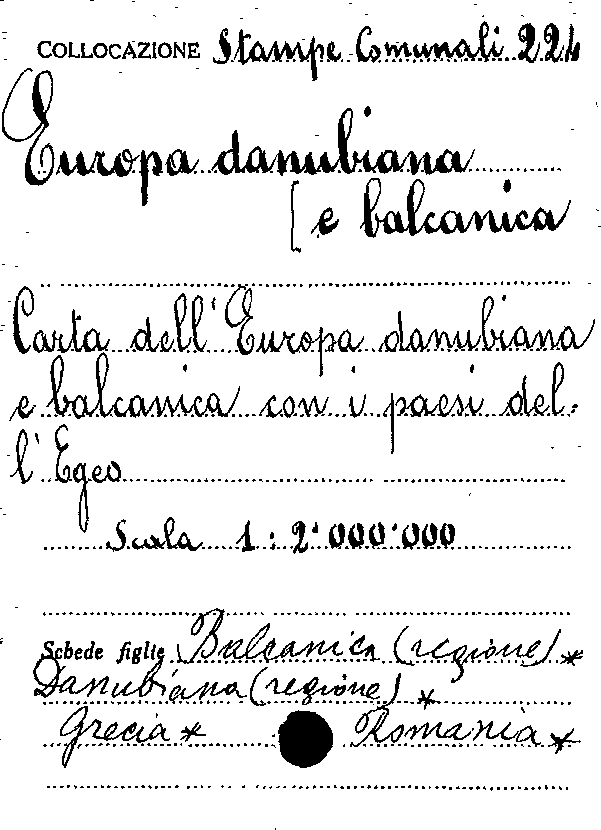 COLLOCAZIONE Stampe Comunali 224
Europa danubiana
[ e balcanica
Carta dell'Europa danubiana
e balcanica con i paesi del-
l'Egeo
Scala 1:2'000'000
Schede figlie Balcanica (regione) *
Danubiana (regione) *
Grecia * Romania *